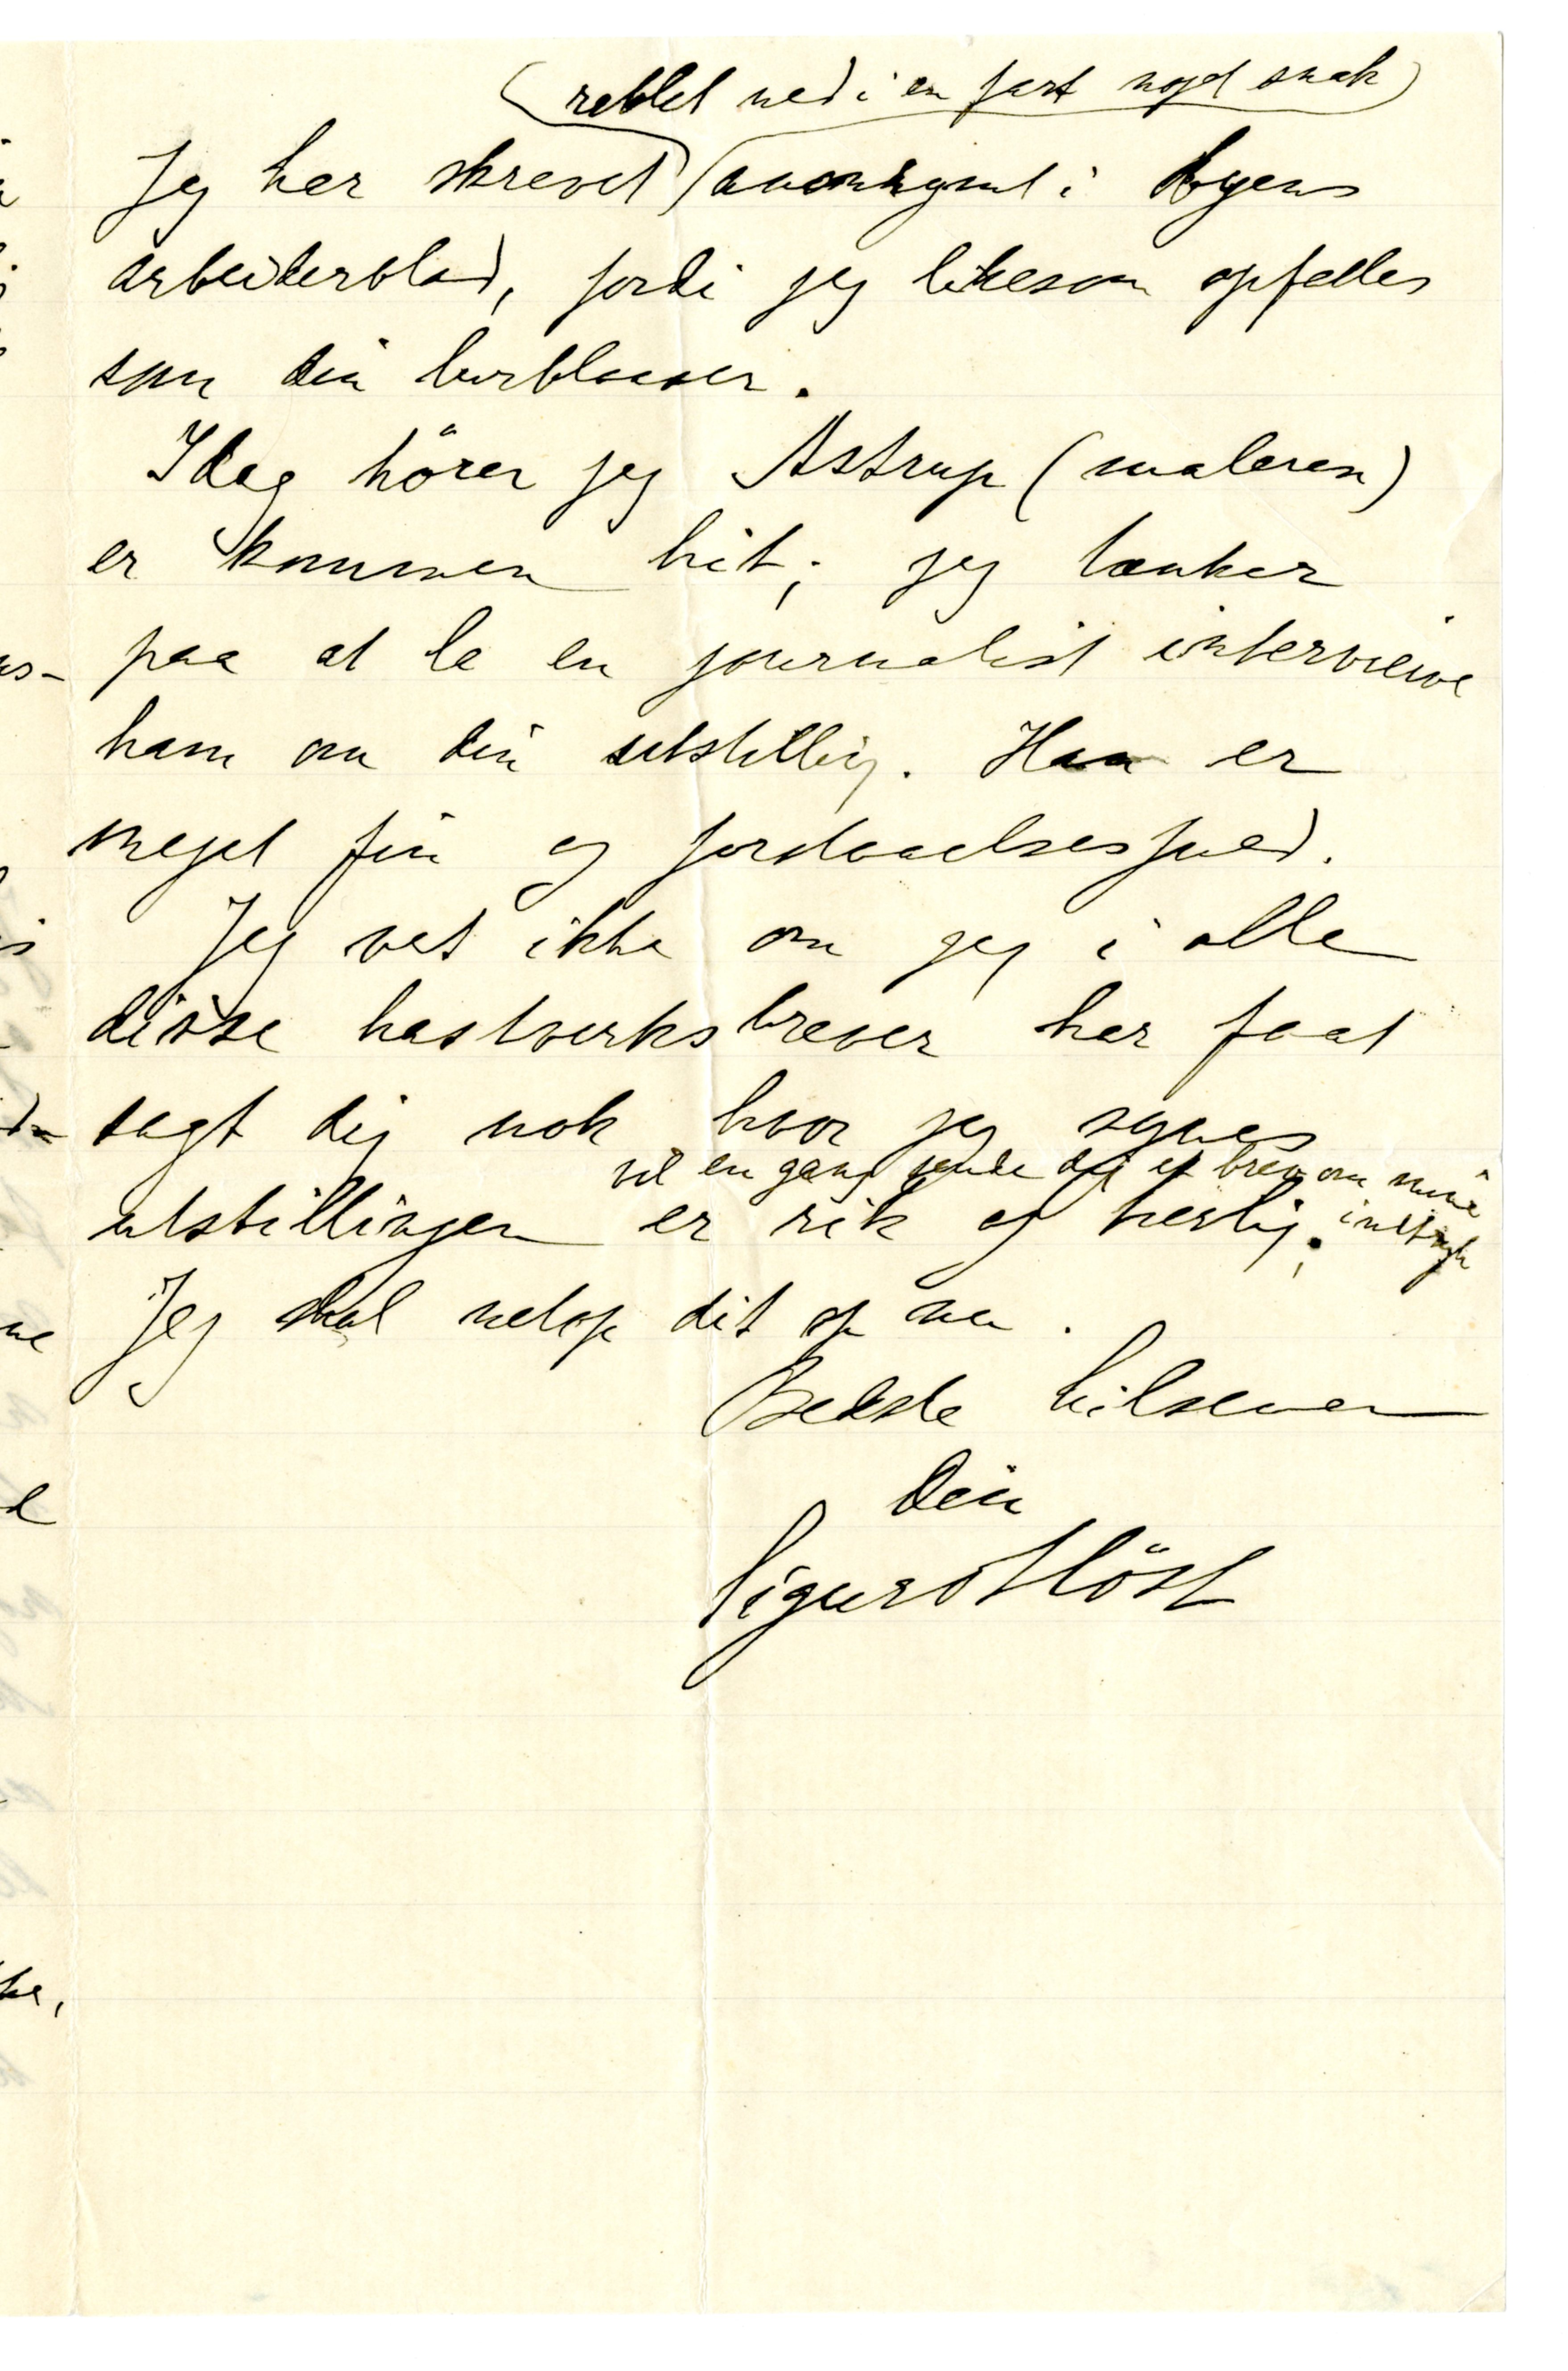 (reblet ned i en fart noget snak)
Jeg har skrevet (anonymt i byens
arbeiderblad, fordi jeg likesom opfattes
som din lurblaaser.
Idag hörer jeg Astrup (maleren)
er kommen hit; jeg tænker
paa at la en journalist interviewe
ham om din utstilling. Han er
meget fin og forstaaelsesfuld.
Jeg vet ikke om jeg i alle
disse hastverksbrever har faat
sagt dig nok hvor jeg synes
vil en gang sende dig et brev om mine
utstillingen er rik og herlig; inntryk
Jeg skal netop dit op nu.
Bedste hilsener
Din
Sigurd Höst